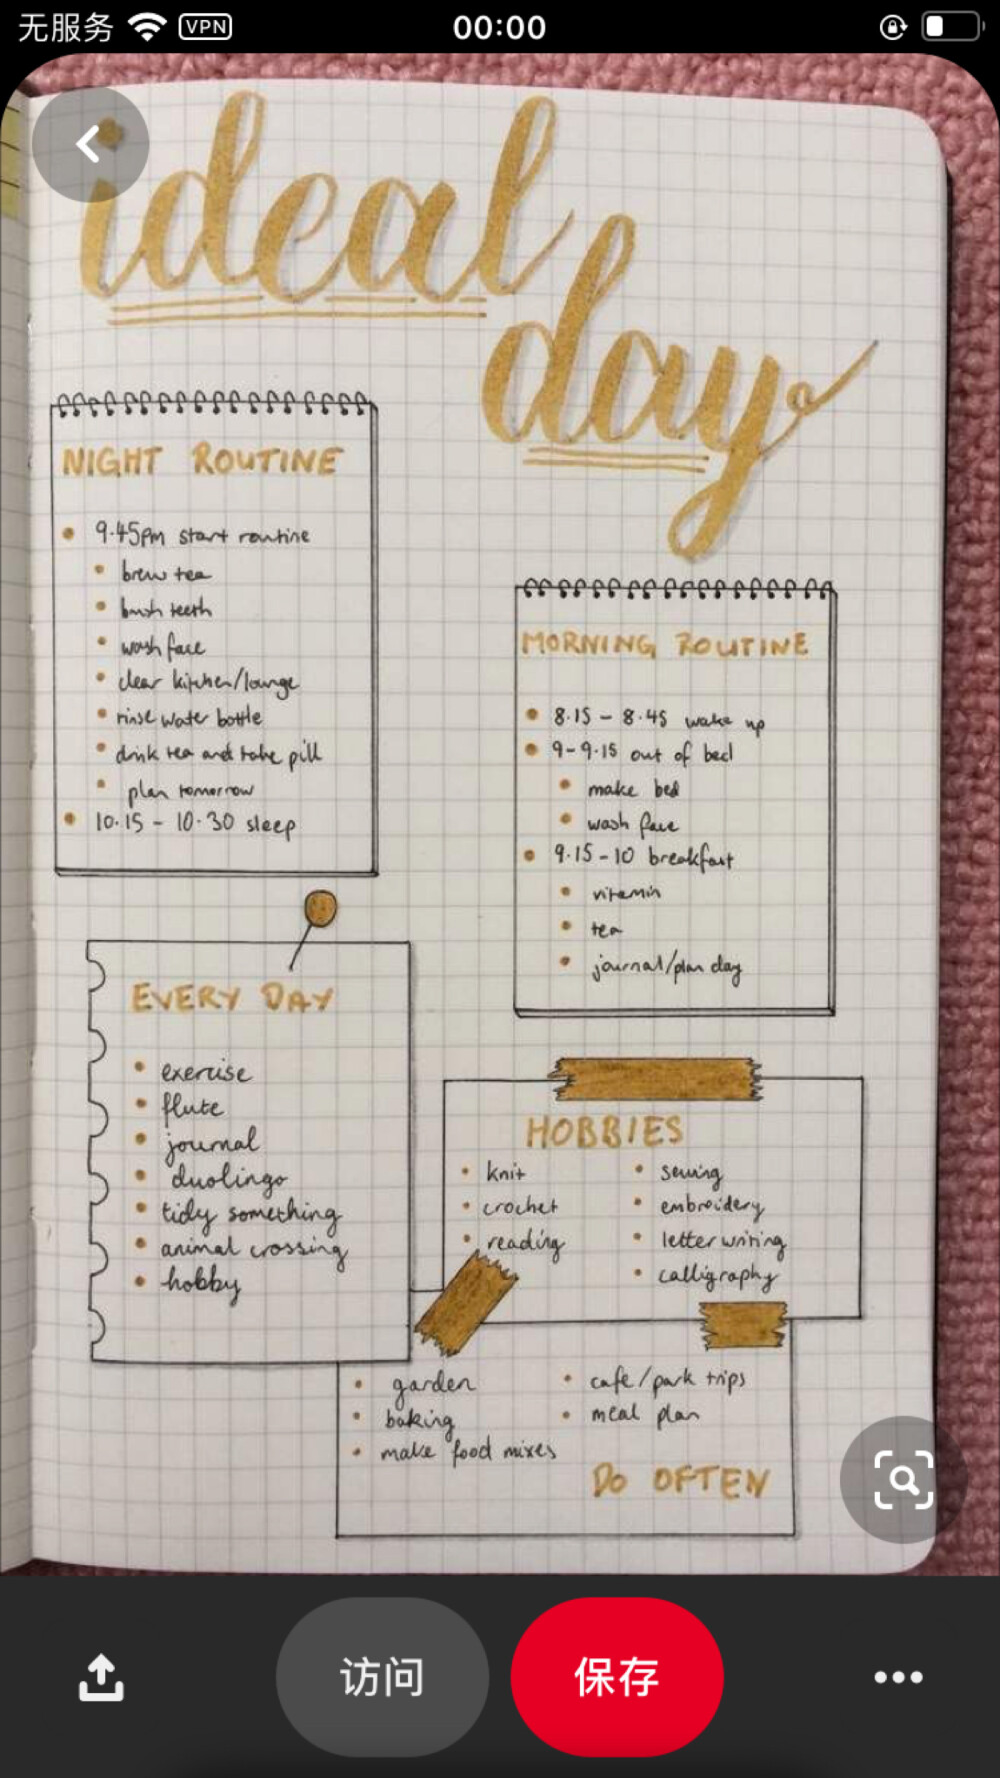 无服务 VPN 00:00
ideal
day
NIGHT ROUTINE
9.45pm start routine
brew tea
brush teeth
wash face
clear kitchen/lounge
rinse water bottle
drink tea and take pill
plan tomorrow
10.15 - 10.30 sleep
MORNING ROUTINE
8.15 - 8.45 wake up
9-9.15 out of bed
make bed
wash face
9.15-10 breakfast
vitamin
tea
journal/plan day
EVERY DAY
exercise
flute
journal
duolingo
tidy something
animal crossing
hobby
HOBBIES
knit
crochet
reading
sewing
embroidery
letter writing
calligraphy
garden
baking
make food mixes
cafe/park trips
meal plan
DO OFTEN
访问
保存